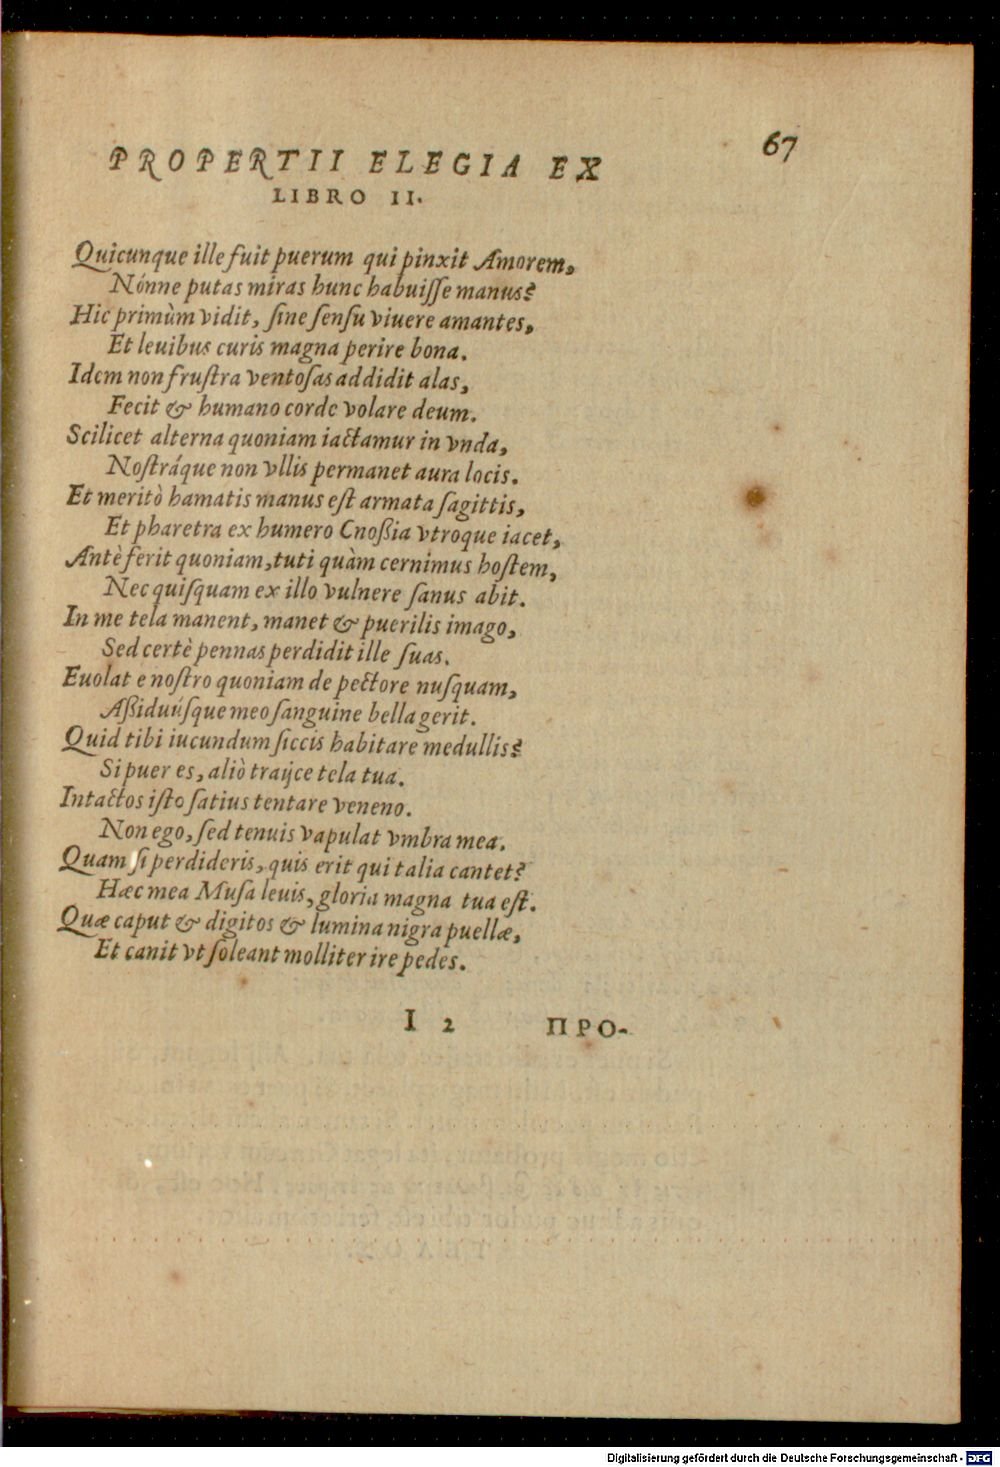 67
PROPERTII ELEGIA EX
LIBRO II.
Quicunque ille fuit puerum qui pinxit Amorem,
Nónne putas miras hunc habuiſſe manus?
Hic primùm vidit, ſine ſenſu viuere amantes,
Et leuibus curis magna perire bona.
Idem non fruſtra ventoſas addidit alas,
Fecit & humano corde volare deum.
Scilicet alterna quoniam iactamur in vnda,
Noſtráque non vllis permanet aura locis.
Et meritò hamatis manus eſt armata ſagittis,
Et pharetra ex humero Cnoßia vtroque iacet,
Antè ferit quoniam, tuti quàm cernimus hoſtem,
Nec quiſquam ex illo vulnere ſanus abit.
In me tela manent, manet & puerilis imago,
Sed certè pennas perdidit ille ſuas.
Euolat e noſtro quoniam de pectore nuſquam,
Aßiduúſque meo ſanguine bella gerit.
Quid tibi iucundum ſiccis habitare medullis?
Si puer es, aliò traijce tela tua.
Intactos iſto ſatius tentare veneno.
Non ego, ſed tenuis vapulat vmbra mea.
Quam ſi perdideris, quis erit qui talia cantet?
Hæc mea Muſa leuis, gloria magna tua eſt.
Quæ caput & digitos & lumina nigra puellæ,
Et canit vt ſoleant molliter ire pedes.
I 2 ΠΡΟ-
Digitalisierung gefördert durch die Deutsche Forschungsgemeinschaft - DFG